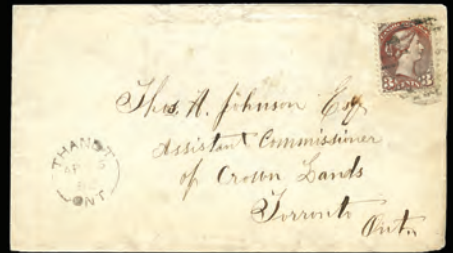 3 CENTS 3
Thos. H. Johnson Esq
Assistant Commissioner
of Crown Lands
Torronto
Ont.
AP
ONT